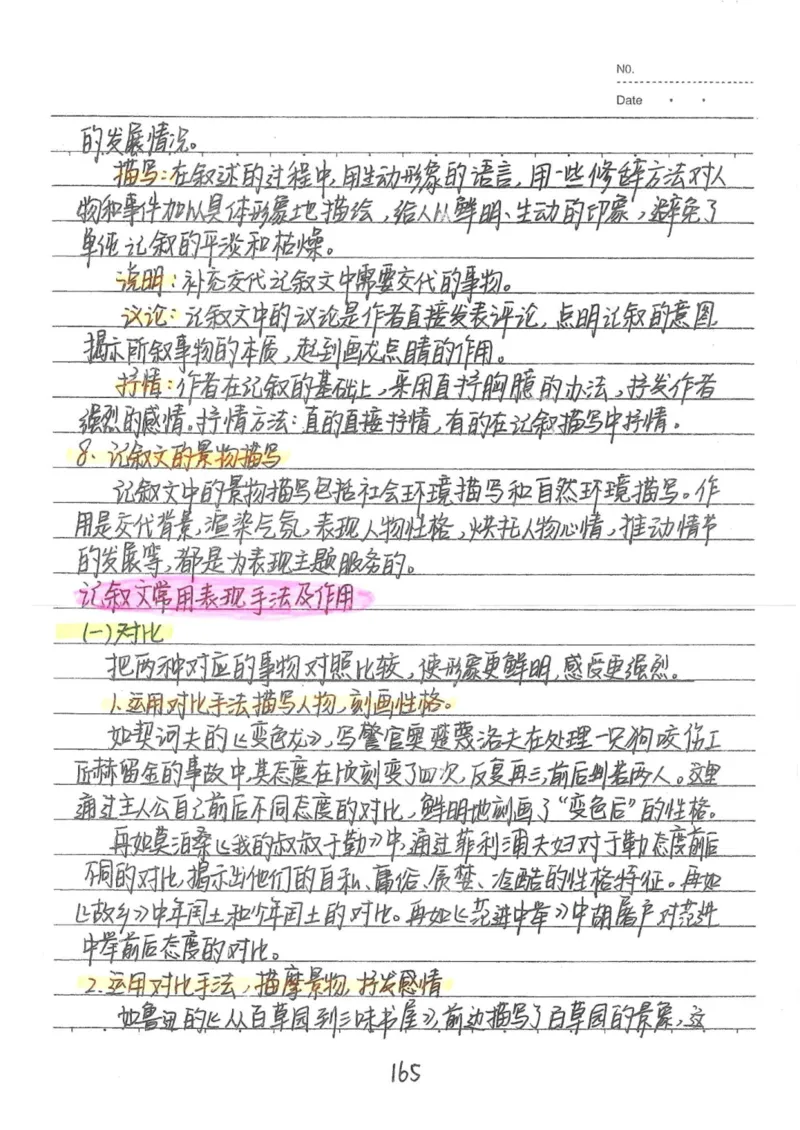 NO.
Date
的发展情况。
描写:在叙述的过程中,用生动形象的语言,用一些修辞方法对人
物和事件加以具体形象地描绘,给人以鲜明、生动的印象,避免了
单纯记叙的平淡和枯燥。
说明:补充交代记叙文中需要交代的事物。
议论:记叙文中的议论是作者直接发表评论,点明记叙的意图,
揭示所叙事物的本质,起到画龙点睛的作用。
抒情:作者在记叙的基础上,采用直抒胸臆的办法,抒发作者
强烈的感情。抒情方法:直的直接抒情,有的在记叙描写中抒情。
8、记叙文的景物描写
记叙文中的景物描写包括社会环境描写和自然环境描写。作
用是交代背景,渲染气氛,表现人物性格,烘托人物心情,推动情节
的发展等,都是为表现主题服务的。
记叙文常用表现手法及作用
(一)对比
把两种对应的事物对照比较,使形象更鲜明,感受更强烈。
1.运用对比手法描写人物,刻画性格。
如契诃夫的《变色龙》,写警官奥楚蔑洛夫在处理一只狗咬伤工
匠赫留金的事故中,其态度在顷刻变了四次,反复再三,前后判若两人。这里
通过主人公自己前后不同态度的对比,鲜明地刻画了“变色后”的性格。
再如莫泊桑《我的叔叔于勒》中,通过菲利浦夫妇对于勒态度前后
不同的对比,揭示出他们的自私、庸俗、贪婪、冷酷的性格特征。再如
《故乡》中年闰土和少年闰土的对比。再如《范进中举》中胡屠户对范进
中举前后态度的对比。
2.运用对比手法,描摩景物,抒发感情
如鲁迅的《从百草园到三味书屋》,前边描写了百草园的景象,这
165